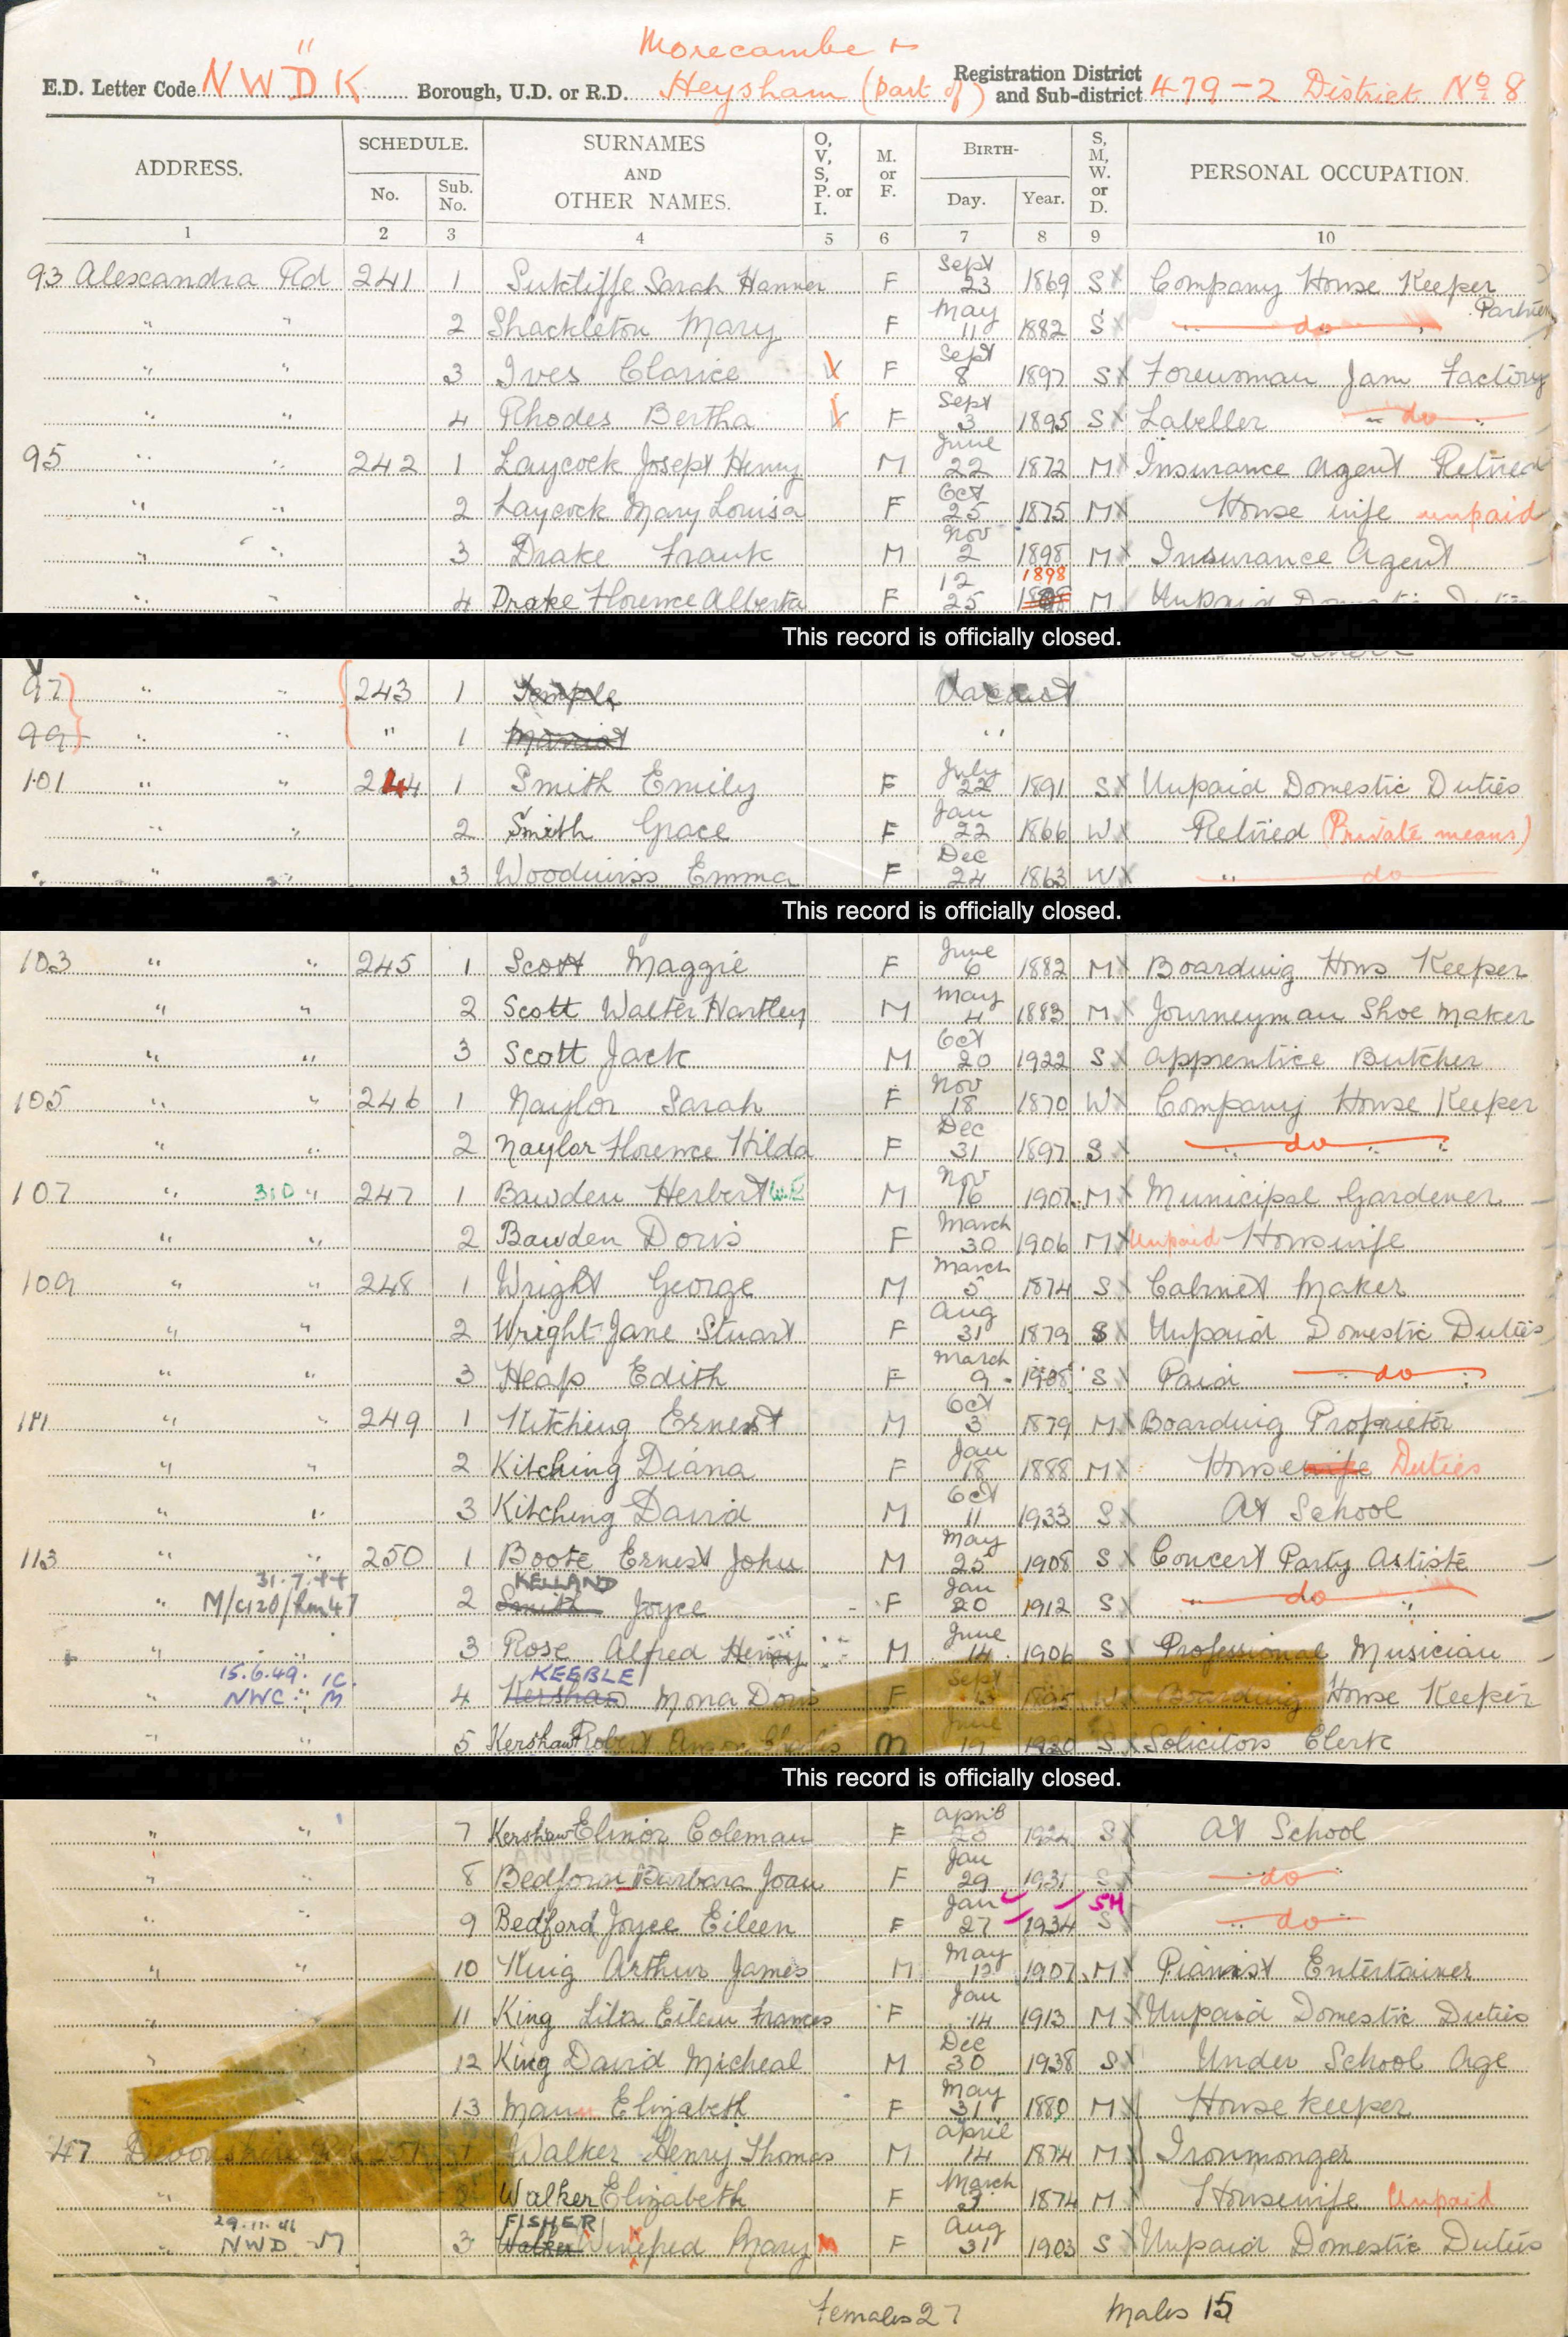 Morecambe &
E.D. Letter Code NWDK Borough, U.D. or R.D. Heysham (part of) Registration District and Sub-district 479-2 District No 8
ADDRESS. SCHEDULE. No. Sub. No. SURNAMES AND OTHER NAMES. O, V, S, P. or I. M. or F. BIRTH- Day. Year. S, M, W. or D. PERSONAL OCCUPATION.
1 2 3 4 5 6 7 8 9 10
93 Alexandra Rd 241 1 Sutcliffe Sarah Hanner F Sept 23 1869 S X Company House Keeper
" " 2 Shackleton Mary F May 11 1882 S X " do " Partner
" " 3 Ives Clarice V F Sept 8 1897 S X Forewoman Jam Factory
" " 4 Rhodes Bertha V F Sept 3 1895 S X Labeller " do "
95 " " 242 1 Laycock Joseph Henry M June 22 1872 M X Insurance Agent Retired
" " 2 Laycock Mary Louisa F Oct 25 1875 M X House wife unpaid
" " 3 Drake Frank M Nov 2 1898 M X Insurance Agent
" " 4 Drake Florence Alberta F 12 25 1898 M Unpaid Domestic Duties
This record is officially closed.
97 " " 243 1 Temple Vacant
99 " " " 1 "
101 " " 244 1 Smith Emily F July 22 1891 S X Unpaid Domestic Duties
" " 2 Smith Grace F Jan 22 1866 W X Retired (Private means)
" " 3 Woodwiss Emma F Dec 24 1863 W X " do
This record is officially closed.
103 " " 245 1 Scott Maggie F June 6 1882 M X Boarding Hous Keeper
" " 2 Scott Walter Hartley M May 4 1883 M X Journeyman Shoe Maker
" " 3 Scott Jack M Oct 20 1922 S X Apprentice Butcher
105 " " 246 1 Naylor Sarah F Nov 18 1870 W X Company House Keeper
" " 2 Naylor Florence Hilda F Dec 31 1897 S X " do " "
107 " 310 " 247 1 Bawden Herbert M Nov 16 1907 M X Municipal Gardener
" " 2 Bawden Doris F March 30 1906 M X Unpaid Housewife
109 " " 248 1 Wright George M March 5 1874 S X Cabinet Maker
" " 2 Wright Jane Stuart F Aug 31 1879 S X Unpaid Domestic Duties
" " 3 Heap Edith F March 9 1908 S X Paid do "
111 " " 249 1 Kitching Ernest M Oct 3 1879 M X Boarding Proprietor
" " 2 Kitching Diana F Jan 18 1888 M X Housewife Duties
" " 3 Kitching David M Oct 11 1933 S X At School
113 " " 250 1 Boote Ernest John M May 25 1908 S X Concert Party Artiste
31.7.44 KELLAND
" M/C120/Lm47 2 Smith Joyce F Jan 20 1912 S X " do "
" " 3 Rose Alfred Henry M June 14 1906 S X Professional Musician
15.6.49. 1C. KEEBLE
" NWC M 4 Kershaw Mona Doris F Sept 1895 W Boarding House Keeper
" " 5 Kershaw Robert M June 19 1920 S X Solicitors Clerk
This record is officially closed.
" " 7 Kershaw Elinor Coleman F April 23 1924 S X At School
ANDERSON
" " 8 Bedford Barbara Joan F Jan 29 1931 S X " do
" " 9 Bedford Joyce Eileen F Jan 27 1934 SM S " do
" " 10 King Arthur James M May 12 1907 M X Pianist Entertainer
" " 11 King Lilia Eileen Frances F Jan 14 1913 M X Unpaid Domestic Duties
" " 12 King David Micheal M Dec 30 1938 S X Under School Age
" " 13 Mann Elizabeth F May 31 1880 M House keeper
47 Devonshire Rd 251 1 Walker Henry Thomas M April 14 1874 M Ironmonger
" 2 Walker Elizabeth F March 3 1874 M Housewife Unpaid
29.11.41 FISHER
" NWD M 3 Walker Winefred Mary M F Aug 31 1903 S X Unpaid Domestic Duties
Females 27 Males 15